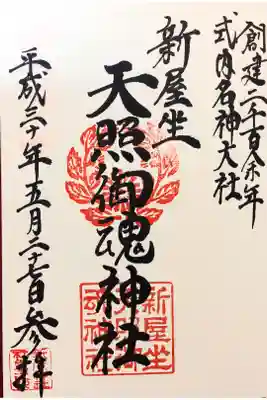 創建二千百余年
式内名神大社
新屋坐
天照御魂神社
平成三十年五月二十七日参拝
新屋坐
天照御
魂神社